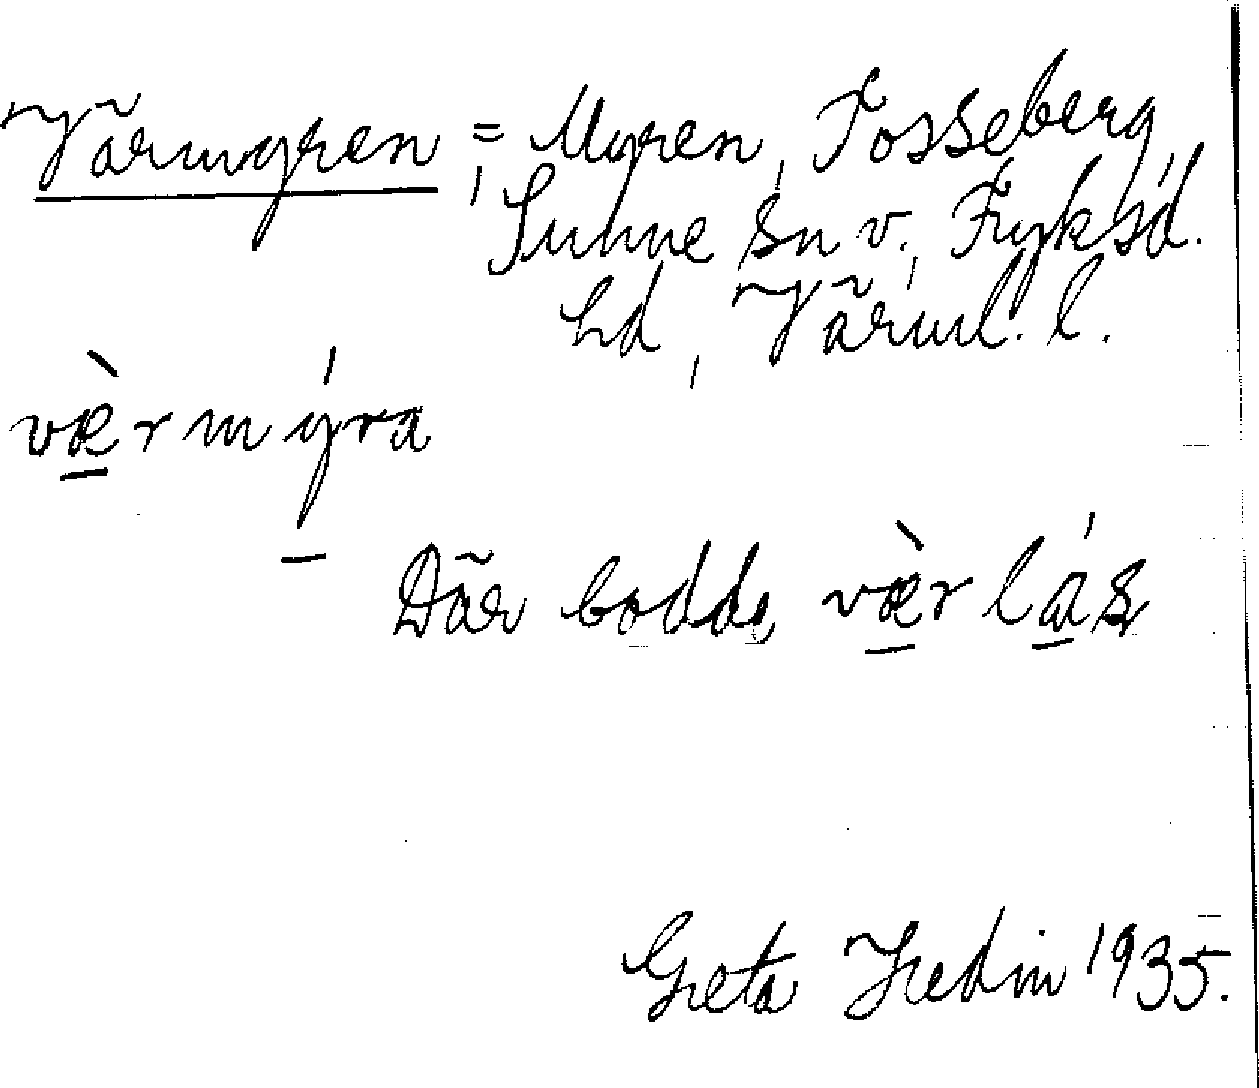 Värmyren, = Myren, Fosseberg,
Sunne sn v., Fryksd.
hd, Värml. l.
væ̀rmýra
Där bodde, væ̀rlás
Greta Hedin 1935.